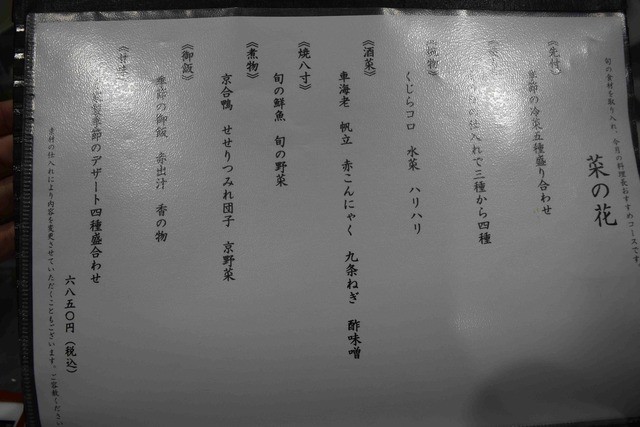 旬の食材を取り入れ、今月の料理長おすすめコースです。
菜の花
《先付》
季節の冷菜五種盛り合わせ
仕入れで三種から四種
くじらコロ 水菜 ハリハリ
《酒菜》
車海老 帆立 赤こんにゃく 九条ねぎ 酢味噌
《焼八寸》
旬の鮮魚 旬の野菜
《煮物》
京合鴨 せせりつみれ団子 京野菜
《御飯》
季節の御飯 赤出汁 香の物
季節のデザート四種盛合わせ
六八五〇円(税込)
食材の仕入れにより内容を変更させていただくこともございます。ご容赦ください